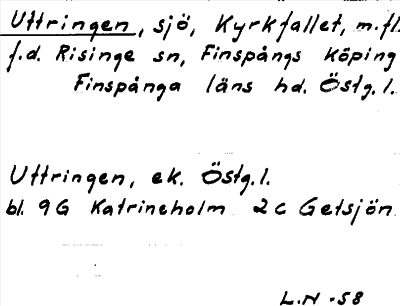 Uttringen, sjö, Kyrkfallet, m.fl.
f.d. Risinge sn, Finspångs köping
Finspånga läns hd. Östg.l.
Uttringen, ek. Östg.l.
bl. 9G Katrineholm 2c Getsjön
L.N -58